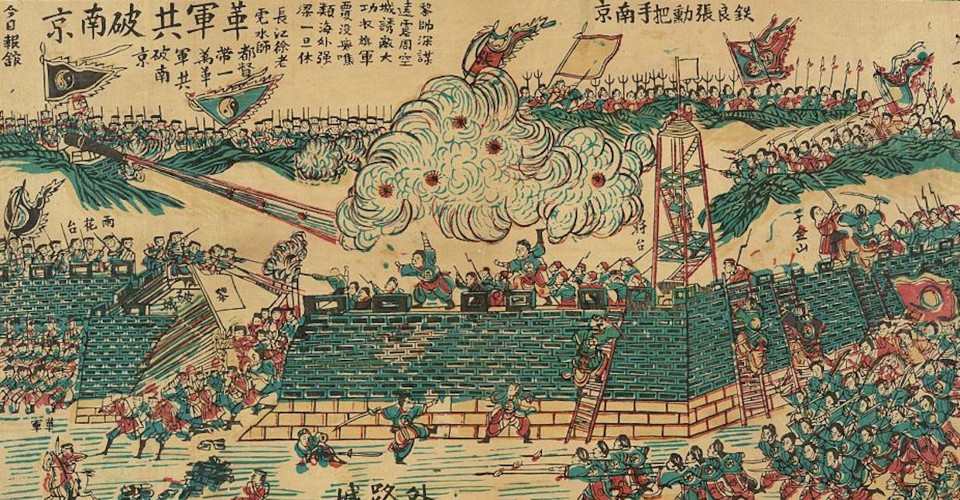 鉄良張勳把手南京
革軍共破南京
黎帥深謀
遠慮周空
城誘敵大
功收旗軍
覆沒無噍
類海外强
梁一旦休
長江徐老
虎水師
都督
帶一
萬革
軍共
破南
京
今日報舘
雨花台
将台
黎
革軍